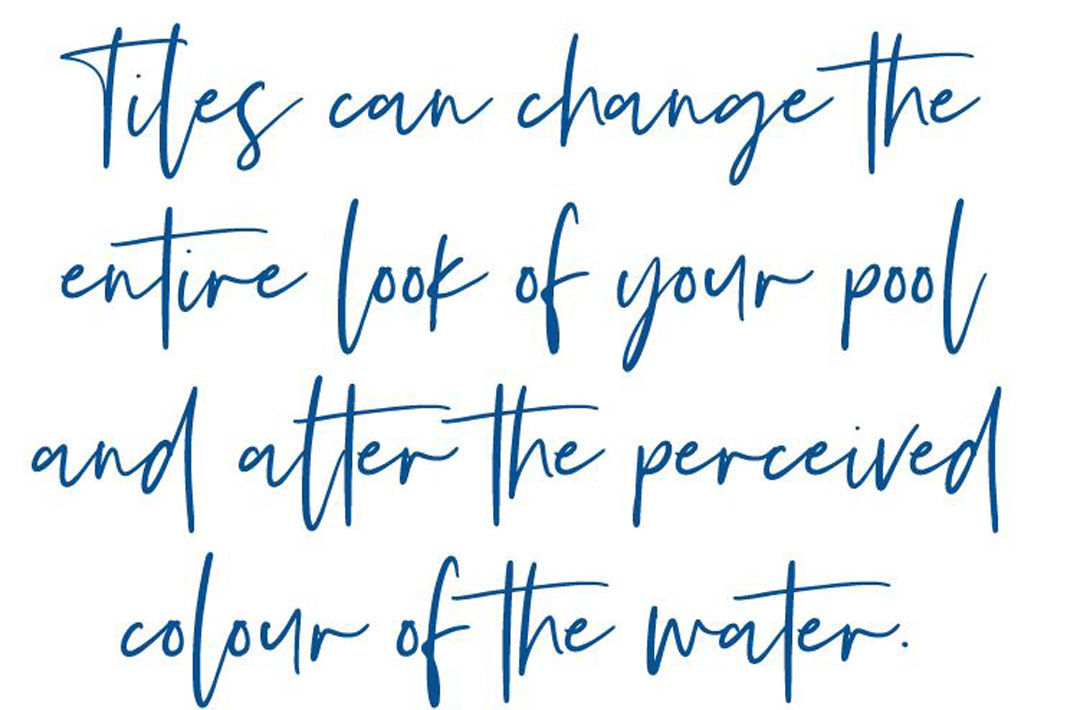 Tiles can change the
entire look of your pool
and alter the perceived
colour of the water.